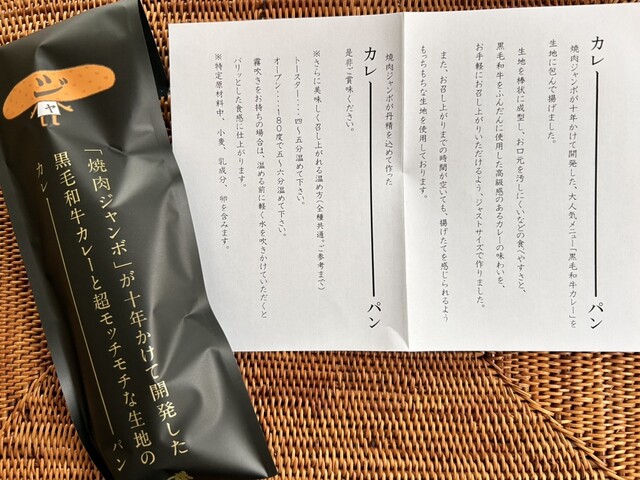 カレーーパン
焼肉ジャンボが十年かけて開発した、大人気メニュー「黒毛和牛カレー」を
生地に包んで揚げました。
生地を棒状に成型し、お口元を汚しにくいなどの食べやすさと、
黒毛和牛をふんだんに使用した高級感のあるカレーの味わいを、
お手軽にお召し上がりいただけるよう、ジャストサイズで作りました。
また、お召し上がりまでの時間が空いても、揚げたてを感じられるよう
もっちもちな生地を使用しております。
カレーーパン
焼肉ジャンボが丹精を込めて作った
是非ご賞味ください。
※さらに美味しく召し上がれる温め方(全種共通。ご参考まで)
トースター・・・四～五分温めて下さい。
オーブン・・・180度で五～六分温めて下さい。
霧吹きをお持ちの場合は、温める前に軽く水を吹きかけていただくと
パリッとした食感に仕上がります。
※特定原材料中、小麦、乳成分、卵を含みます。
ジャ
「焼肉ジャンボ」が十年かけて開発した
黒毛和牛カレーと超モッチモチな生地の
カレーーパン